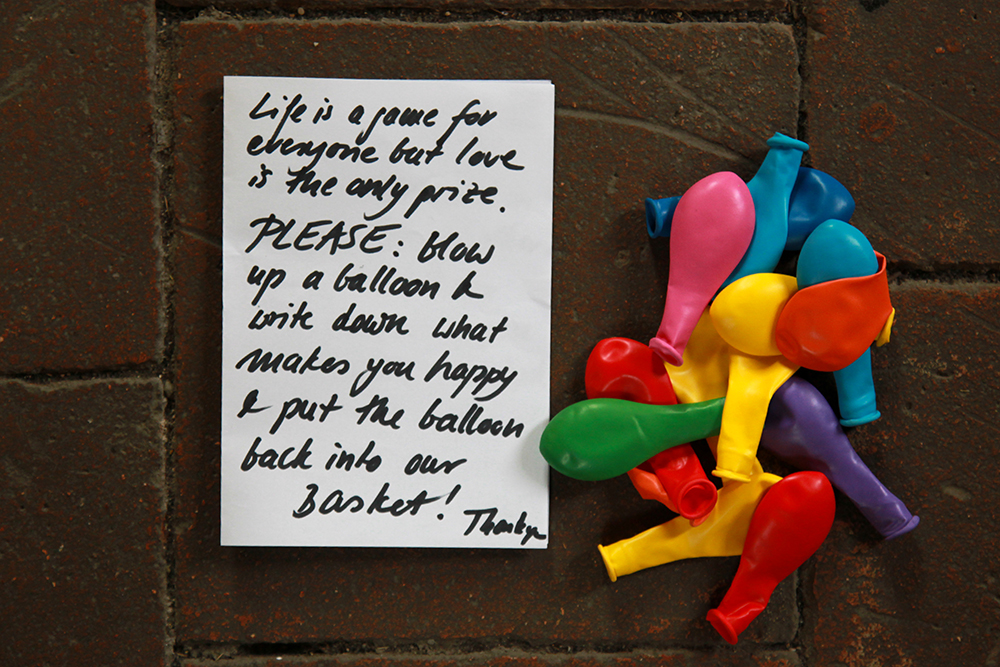 Life is a game for
everyone but love
is the only prize.
PLEASE: Blow
up a balloon &
write down what
makes you happy
& put the balloon
back into our
Basket!
Thankyu